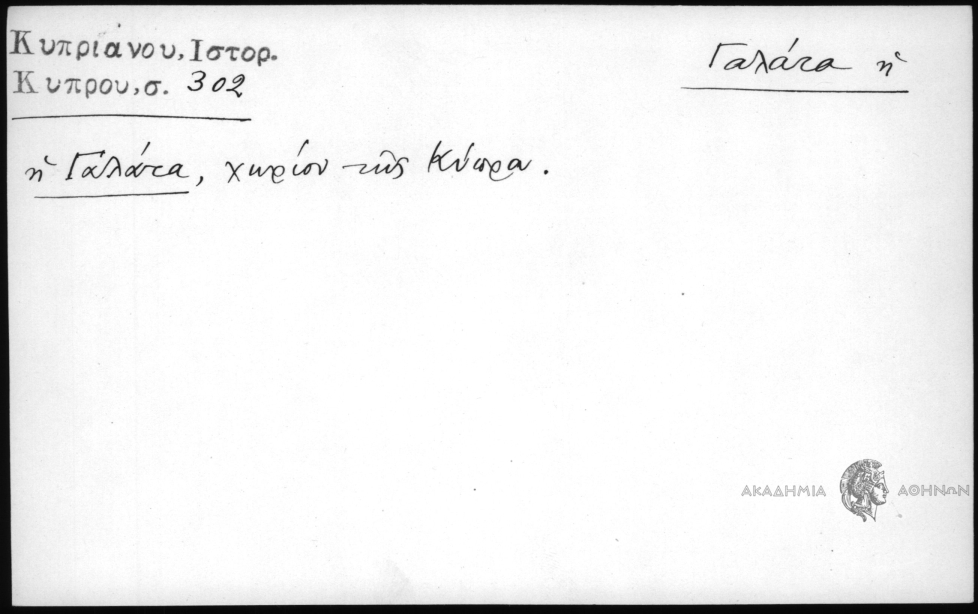 Κυπριανου, Ιστορ.
Κυπρου, σ. 302
Γαλάτα ἡ
ἡ Γαλάτα, χωρίον τῆς Κύπρου.
ΑΚΑΔΗΜΙΑ ΑΘΗΝΩΝ